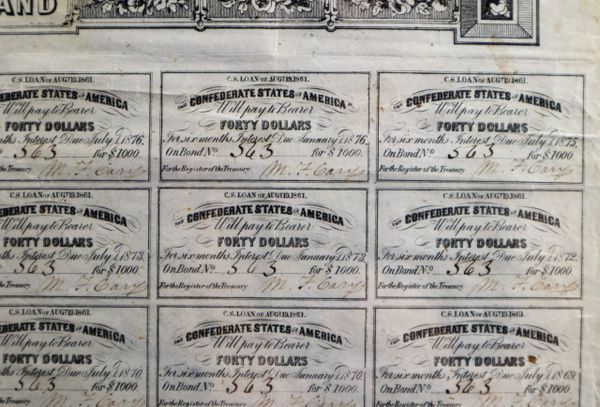 AND
C.S. LOAN OF AUGT 19, 1861.
CONFEDERATE STATES OF AMERICA
Will pay to Bearer
FORTY DOLLARS
ths Interest Due July 1, 1876.
563 for $1000.
For the Register of the Treasury M. F. Cary
C.S. LOAN OF AUGT 19, 1861.
THE CONFEDERATE STATES OF AMERICA
Will pay to Bearer
FORTY DOLLARS
For six months Interest Due January 1, 1876.
On Bond No 563 for $1000.
For the Register of the Treasury M. F. Cary
C.S. LOAN OF AUGT 19, 1861.
THE CONFEDERATE STATES OF AMERICA
Will pay to Bearer
FORTY DOLLARS
For six months Interest Due July 1, 1875.
On Bond No 563 for $1000.
For the Register of the Treasury M. F. Cary
C.S. LOAN OF AUGT 19, 1861.
CONFEDERATE STATES OF AMERICA
Will pay to Bearer
FORTY DOLLARS
ths Interest Due July 1, 1873.
563 for $1000.
the Treasury M. F. Cary
C.S. LOAN OF AUGT 19, 1861.
THE CONFEDERATE STATES OF AMERICA
Will pay to Bearer
FORTY DOLLARS
For six months Interest Due January 1, 1873.
On Bond No 563 for $1000.
For the Register of the Treasury M. F. Cary
C.S. LOAN OF AUGT 19, 1861.
THE CONFEDERATE STATES OF AMERICA
Will pay to Bearer
FORTY DOLLARS
For six months Interest Due July 1, 1872.
On Bond No 563 for $1000.
For the Register of the Treasury M. F. Cary
C.S. LOAN OF AUGT 19, 1861.
CONFEDERATE STATES OF AMERICA
Will pay to Bearer
FORTY DOLLARS
ths Interest Due July 1, 1870.
563 for $1000
C.S. LOAN OF AUGT 19, 1861.
THE CONFEDERATE STATES OF AMERICA
Will pay to Bearer
FORTY DOLLARS
For six months Interest Due January 1, 1870.
On Bond No 563 for $1000.
C.S. LOAN OF AUGT 19, 1861.
THE CONFEDERATE STATES OF AMERICA
Will pay to Bearer
FORTY DOLLARS
For six months Interest Due July 1, 1869.
On Bond No 563 for $1000.